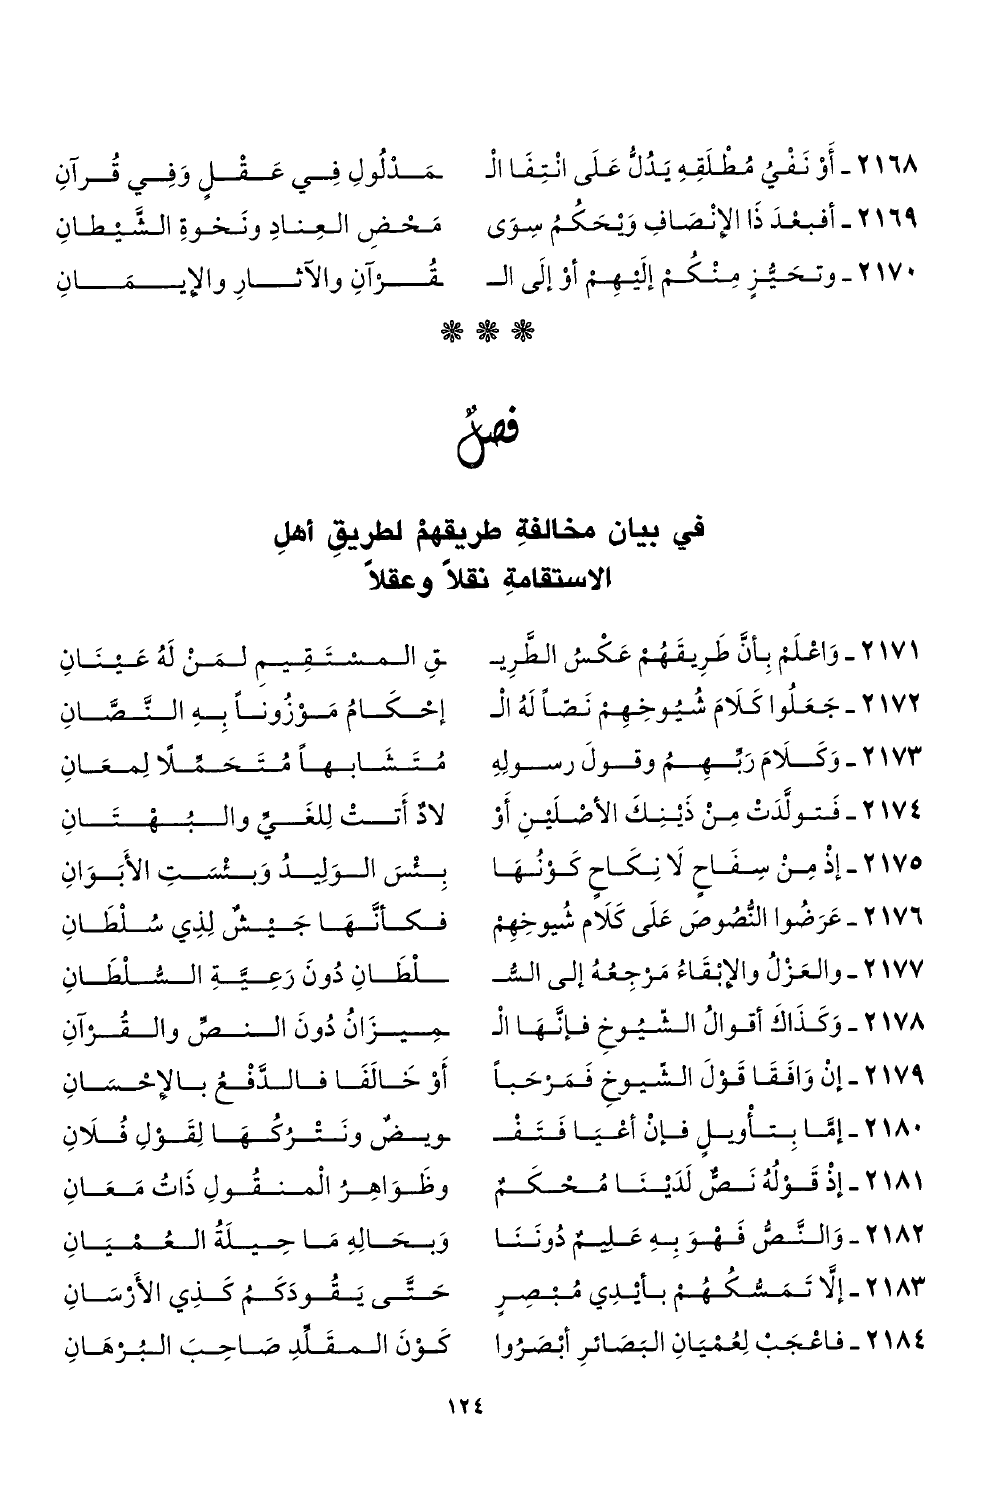 ٢١٦٨ ـ أَوْ نَفْيُ مُطْلَقِهِ يَدُلُّ عَلَى انْتِفَا الْـ مَـدْلُولِ فِي عَقْلٍ وَفِي قُرآنِ
٢١٦٩ ـ أفبَعْدَ ذَا الإنْصَافِ وَيْحَكُمُ سِوَى مَحْضِ العِنادِ ونَخوةِ الشَّيطانِ
٢١٧٠ ـ وتحَيُّزٍ مِنْكُمْ إلَيْهِمْ أوْ إلَى الـ ـقُرْآنِ والآثارِ والإيمَانِ
❋ ❋ ❋
فصلٌ
في بيان مخالفةِ طريقهمْ لطريقِ أهلِ
الاستقامةِ نقلاً وعقلاً
٢١٧١ ـ وَاعْلَمْ بأنَّ طَرِيقَهُمْ عَكْسُ الطَّرِيـ ـقِ المسْتَقِيمِ لمَنْ لَهُ عَيْنَانِ
٢١٧٢ ـ جَعَلُوا كَلَامَ شُيُوخِهِمْ نَصّاً لَهُ الْـ إحْكَامُ مَوْزُوناً بِهِ النَّصَّانِ
٢١٧٣ ـ وَكَلَامَ رَبِّهِمُ وقولَ رسولِهِ مُتَشَابهاً مُتَحَمِّلًا لِمعَانِ
٢١٧٤ ـ فَتولَّدَتْ مِنْ ذَيْنِكَ الأصْلَيْنِ أوْ لادٌ أَتتْ لِلغَيِّ والبُهْتَانِ
٢١٧٥ ـ إذْ مِنْ سِفَاحٍ لَا نِكَاحٍ كَوْنُهَا بِئْسَ الوَلِيدُ وَبِئْسَتِ الأبَوَانِ
٢١٧٦ ـ عَرَضُوا النُّصُوصَ عَلَى كَلَامِ شُيوخِهِمْ فكأنَّهَا جَيْشٌ لِذِي سُلْطَانِ
٢١٧٧ ـ والعَزْلُ والإبْقَاءُ مَرْجِعُهُ إلى السُّـ ـلْطَانِ دُونَ رَعِيَّةِ السُّلْطَانِ
٢١٧٨ ـ وَكَذَاكَ أقوالُ الشّيُوخِ فإنَّهَا الْـ ـمِيزَانُ دُونَ النصِّ والقُرْآنِ
٢١٧٩ ـ إنْ وَافَقَا قَوْلَ الشّيوخِ فَمَرْحَباً أوْ خَالَفَا فالدَّفْعُ بالإحْسَانِ
٢١٨٠ ـ إمَّا بِتأْويلٍ فإنْ أعْيَا فَتَفْـ ـويضٌ ونَتْرُكُهَا لِقَوْلِ فُلَانِ
٢١٨١ ـ إذْ قَوْلُهُ نَصٌّ لَدَيْنَا مُحْكَمٌ وظَوَاهِرُ الْمنقُولِ ذَاتُ مَعَانِ
٢١٨٢ ـ وَالنَّصُّ فَهْوَ بِهِ عَلِيمٌ دُونَنَا وَبحَالِهِ مَا حِيلَةُ العُمْيَانِ
٢١٨٣ ـ إلَّا تَمَسُّكُهُمْ بأيْدِي مُبْصِرٍ حَتَّى يَقُودَكُمُ كَذِي الأرْسَانِ
٢١٨٤ ـ فاعْجَبْ لِعُمْيَانِ البَصَائرِ أبْصَرُوا كَوْنَ المقَلِّدِ صَاحِبَ البُرْهَانِ
١٢٤